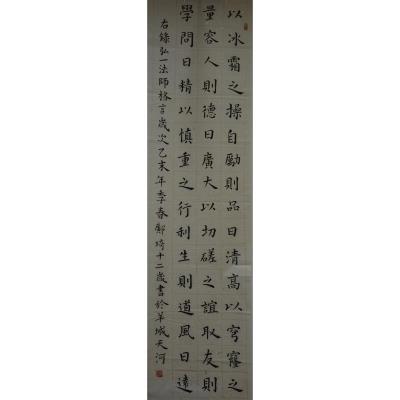 以冰霜之操自勵則品日清高以穹窿之
量容人則德日廣大以切磋之誼取友則
學問日精以慎重之行利生則道風日遠
右錄弘一法師格言歲次乙未年季春鄭琦十二歲書於羊城天河